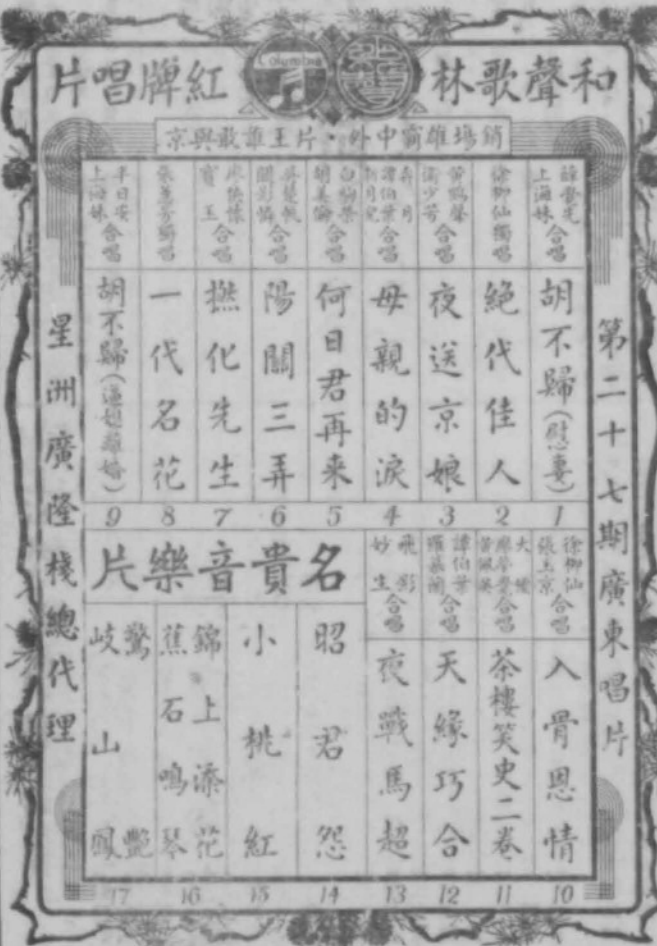 和聲歌林
Columbia
紅牌唱片
銷場雄霸中外·片王誰敢與京
第二十七期廣東唱片
薛覺先
上海妹
合唱
胡不歸(慰妻)
1
徐柳仙獨唱
絕代佳人
2
黃鶴聲
合唱
夜送京娘
3
弄月
譚伯葉
新月兒
合唱
母親的淚
4
白駒榮
胡美倫
合唱
何日君再来
5
關影憐
合唱
陽關三弄
6
廖俠懷
寶玉
合唱
撫化先生
7
張蕙芳獨唱
一代名花
8
半日安
上海妹
合唱
胡不歸(逼媳離婚)
9
徐柳仙
張玉京
合唱
入骨恩情
10
大傻
廖夢覺
合唱
茶樓笑史二卷
11
譚伯葉
羅慕蘭
合唱
天緣巧合
12
飛影
妙生
合唱
夜戰馬超
13
名貴音樂片
昭君怨
14
小桃紅
15
錦上添花
蕉石鳴琴
16
驚艷
岐山鳳
17
星洲廣隆棧總代理